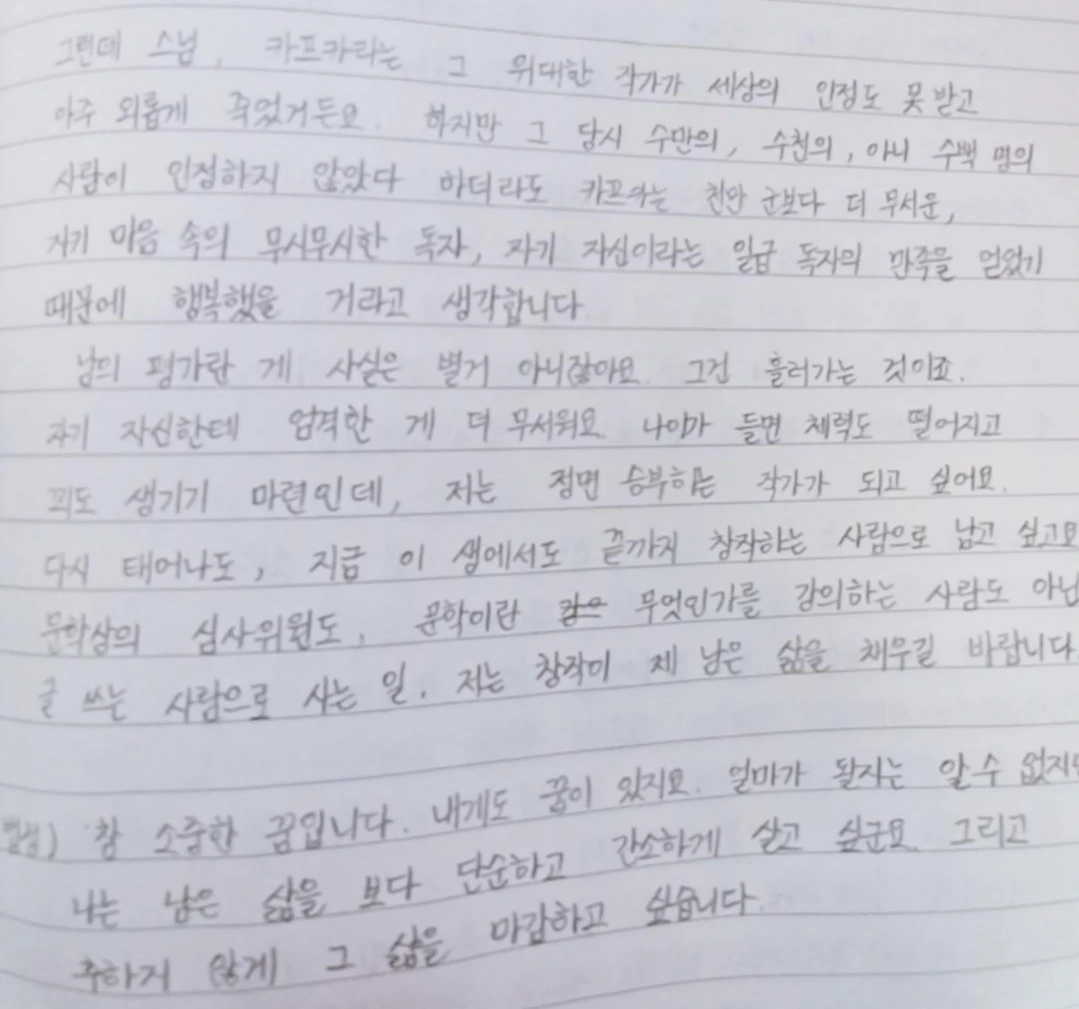 그런데 스님, 카프카라는 그 위대한 작가가 세상의 인정도 못 받고
아주 외롭게 죽었거든요. 하지만 그 당시 수만의, 수천의, 아니 수백 명의
사람이 인정하지 않았다 하더라도 카프카는 천만 군보다 더 무서운,
자기 마음 속의 무시무시한 독자, 자기 자신이라는 일급 독자의 만족을 얻었기
때문에 행복했을 거라고 생각합니다.
남의 평가란 게 사실은 별거 아니잖아요. 그건 흘러가는 것이죠.
자기 자신한테 엄격한 게 더 무서워요. 나이가 들면 체력도 떨어지고
꾀도 생기기 마련인데, 저는 정면 승부하는 작가가 되고 싶어요.
다시 태어나도, 지금 이 생에서도 끝까지 창작하는 사람으로 남고 싶고요
문학상의 심사위원도, 문학이란 무엇인가를 강의하는 사람도 아닌
글 쓰는 사람으로 사는 일. 저는 창작이 제 남은 삶을 채우길 바랍니다
참 소중한 꿈입니다. 내게도 꿈이 있지요. 얼마가 될지는 알 수 없지만
나는 남은 삶을 보다 단순하고 간소하게 살고 싶군요. 그리고
추하지 않게 그 삶을 마감하고 싶습니다.